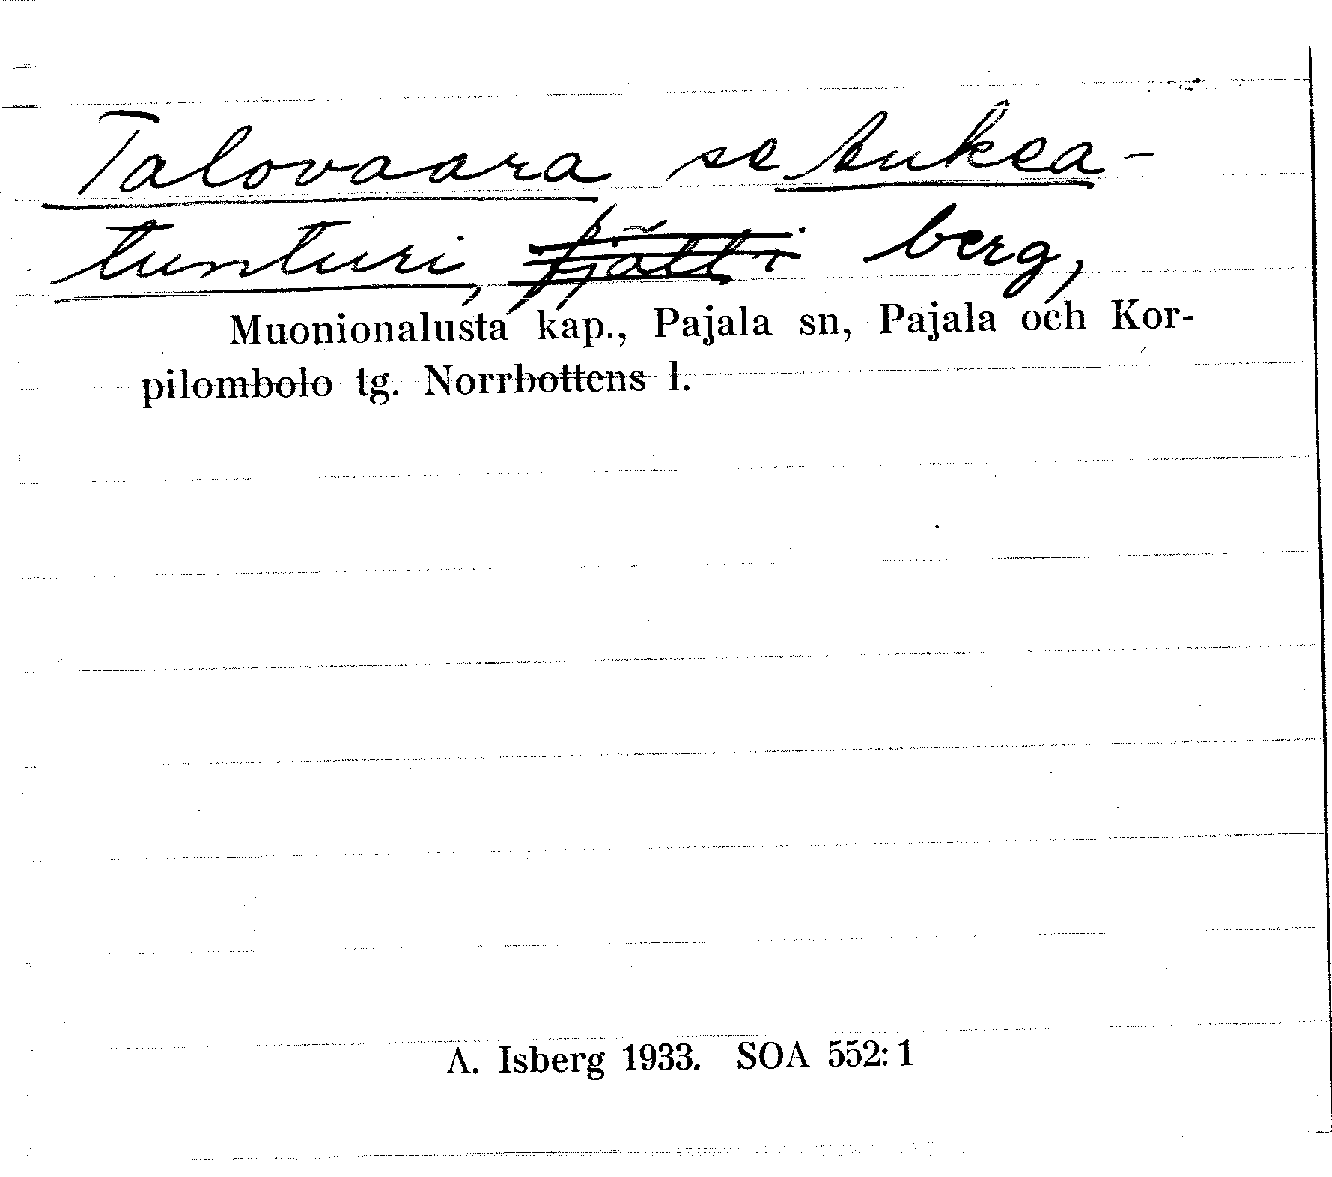 Talovaara se Aukea-
tunturi, fjäll i berg,
Muonionalusta kap., Pajala sn, Pajala och Kor-
pilombolo tg. Norrbottens l.
A. Isberg 1933. SOA 552:1